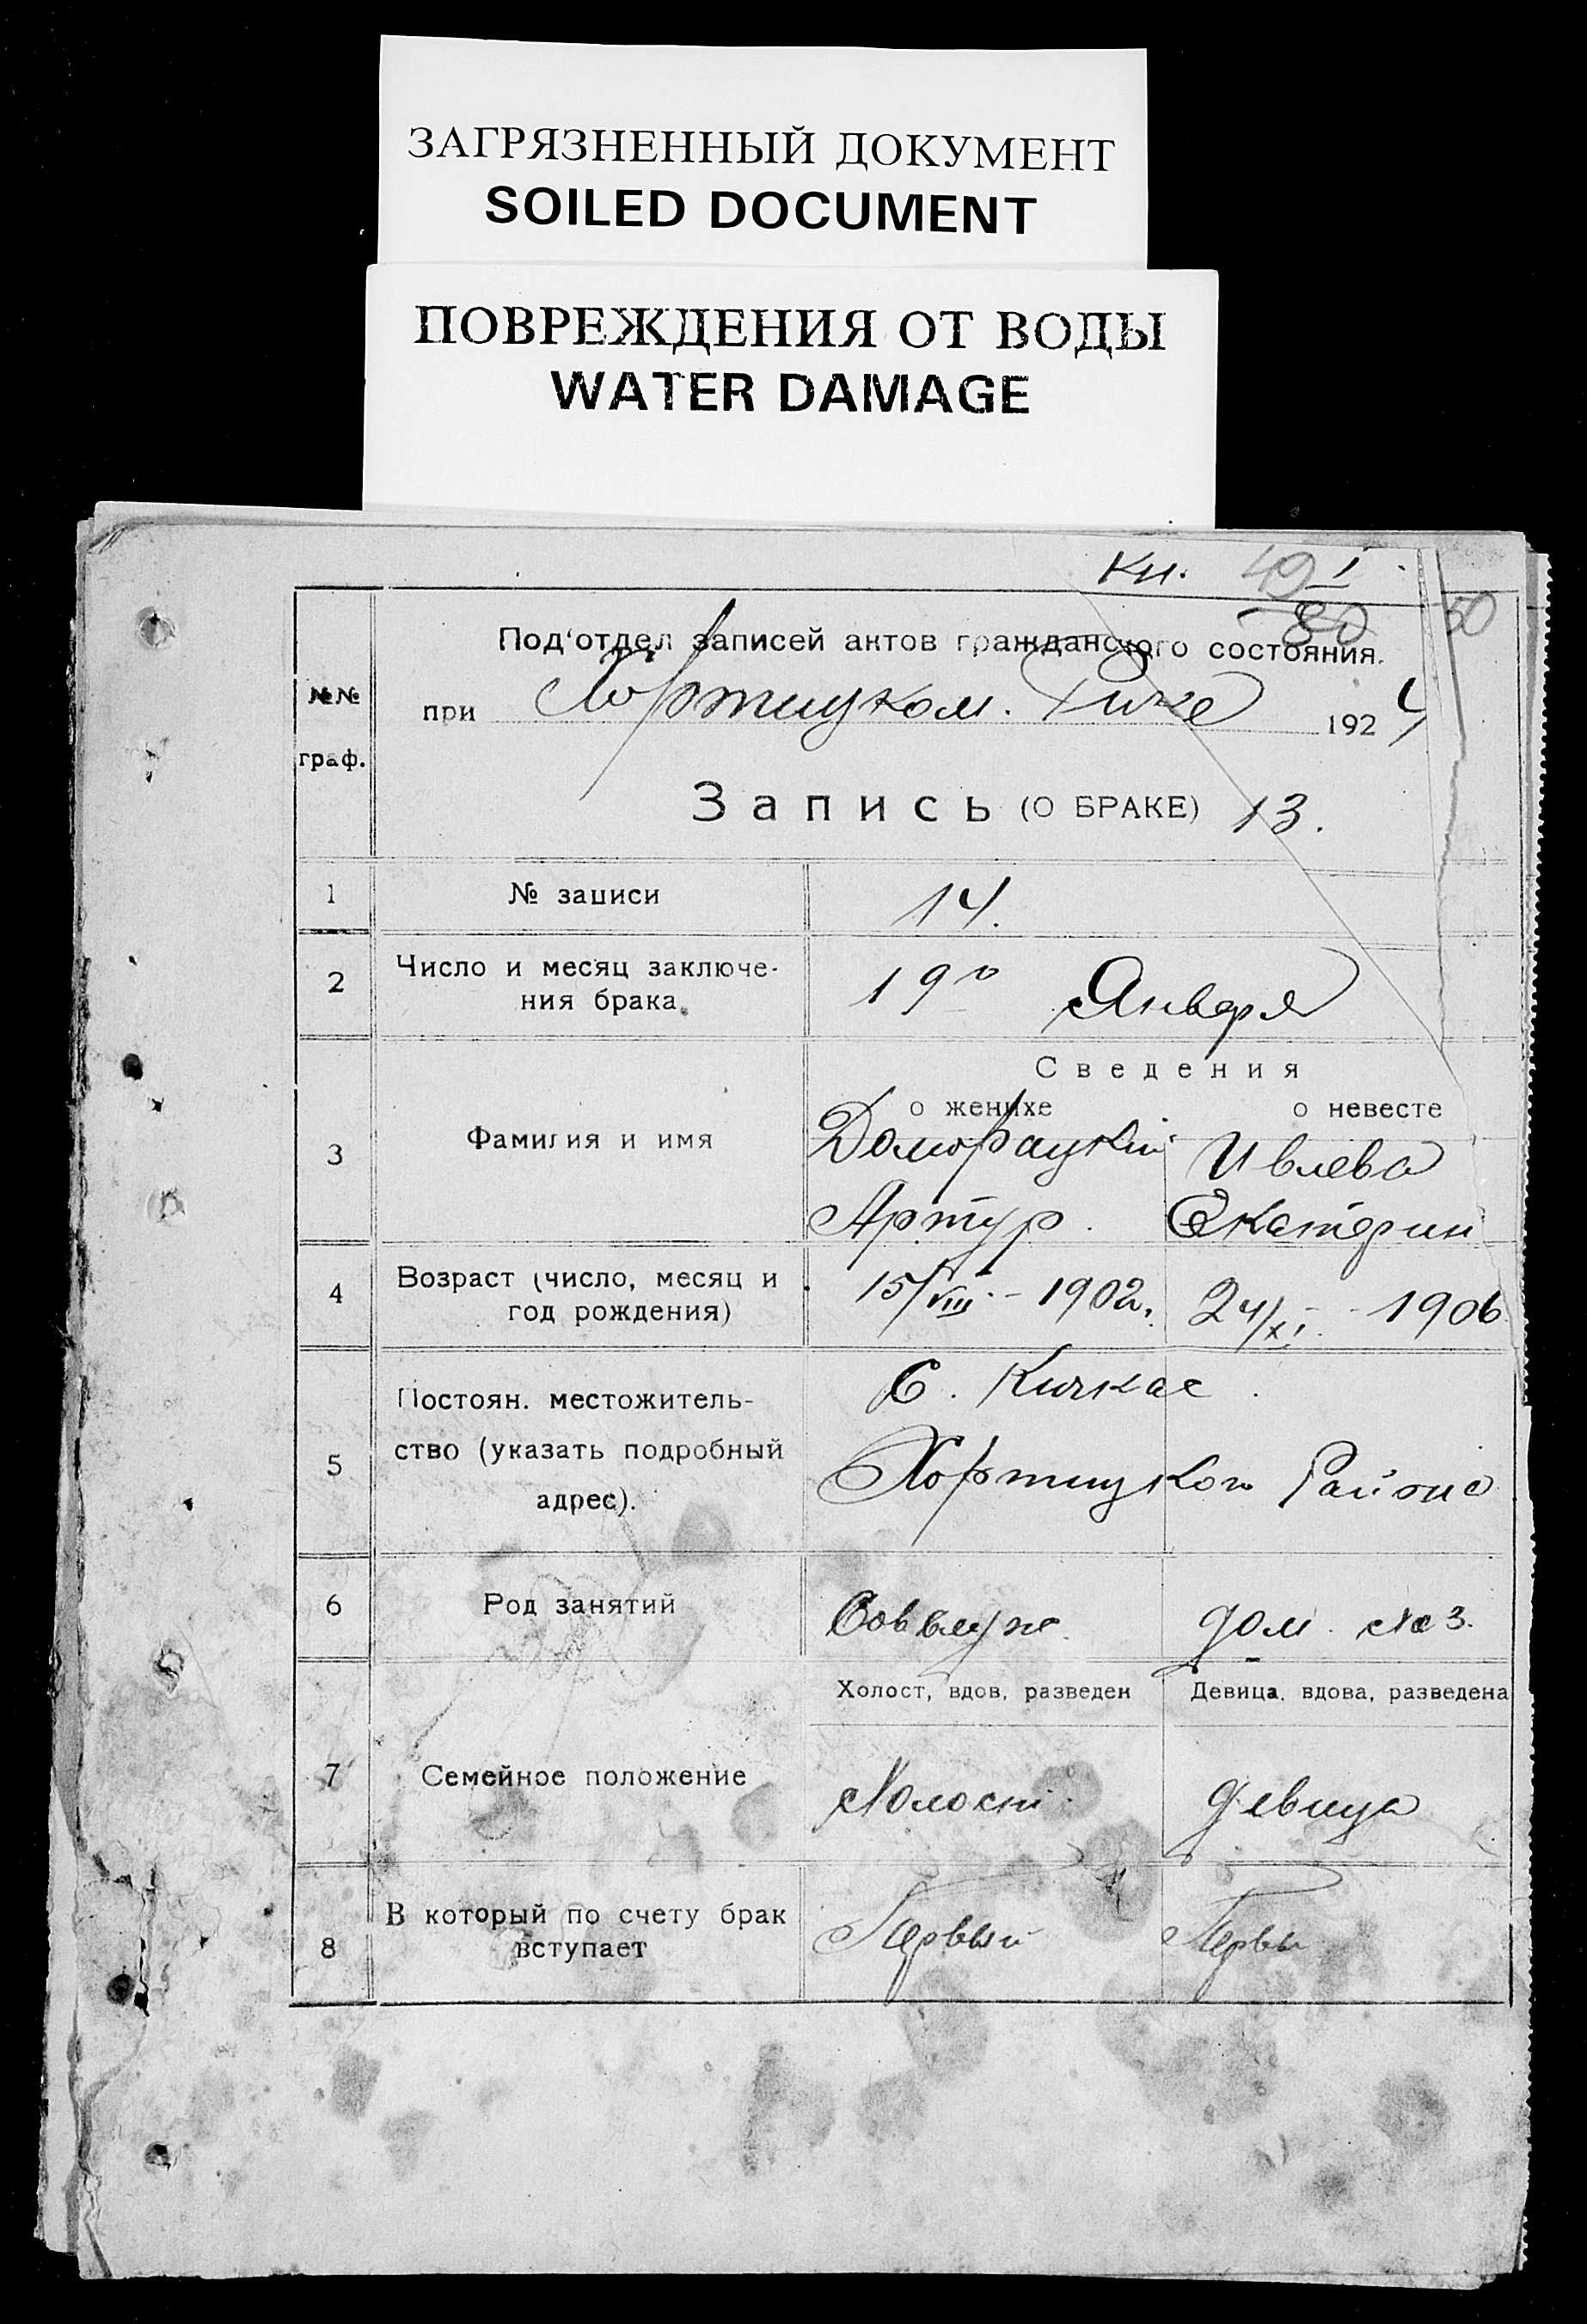 ЗАГРЯЗНЕННЫЙ ДОКУМЕНТ
SOILED DOCUMENT
ПОВРЕЖДЕНИЯ ОТ ВОДЫ
WATER DAMAGE
Кн. 49 1
80 50
Под'отдел записей актов гражданского состояния.
при Хортицком. Рике 1924
№№ граф.
Запись (О БРАКЕ) 13.
1 № записи 14.
2 Число и месяц заключе-
ния брака. 19го Января
Сведения
о женихе о невесте
3 Фамилия и имя Доморацкий Ивлева
Артур. Екатерин
4 Возраст (число, месяц и
год рождения) 15/VIII - 1902. 24/XI. - 1906
5 Постоян. местожитель-
ство (указать подробный
адрес).
С. Кичкас.
Хортицкого Района
6 Род занятий Совслуж. дом. хоз.
Холост, вдов, разведен Девица, вдова, разведена
7 Семейное положение Холост. девица
8 В который по счету брак
вступает Первый Первы